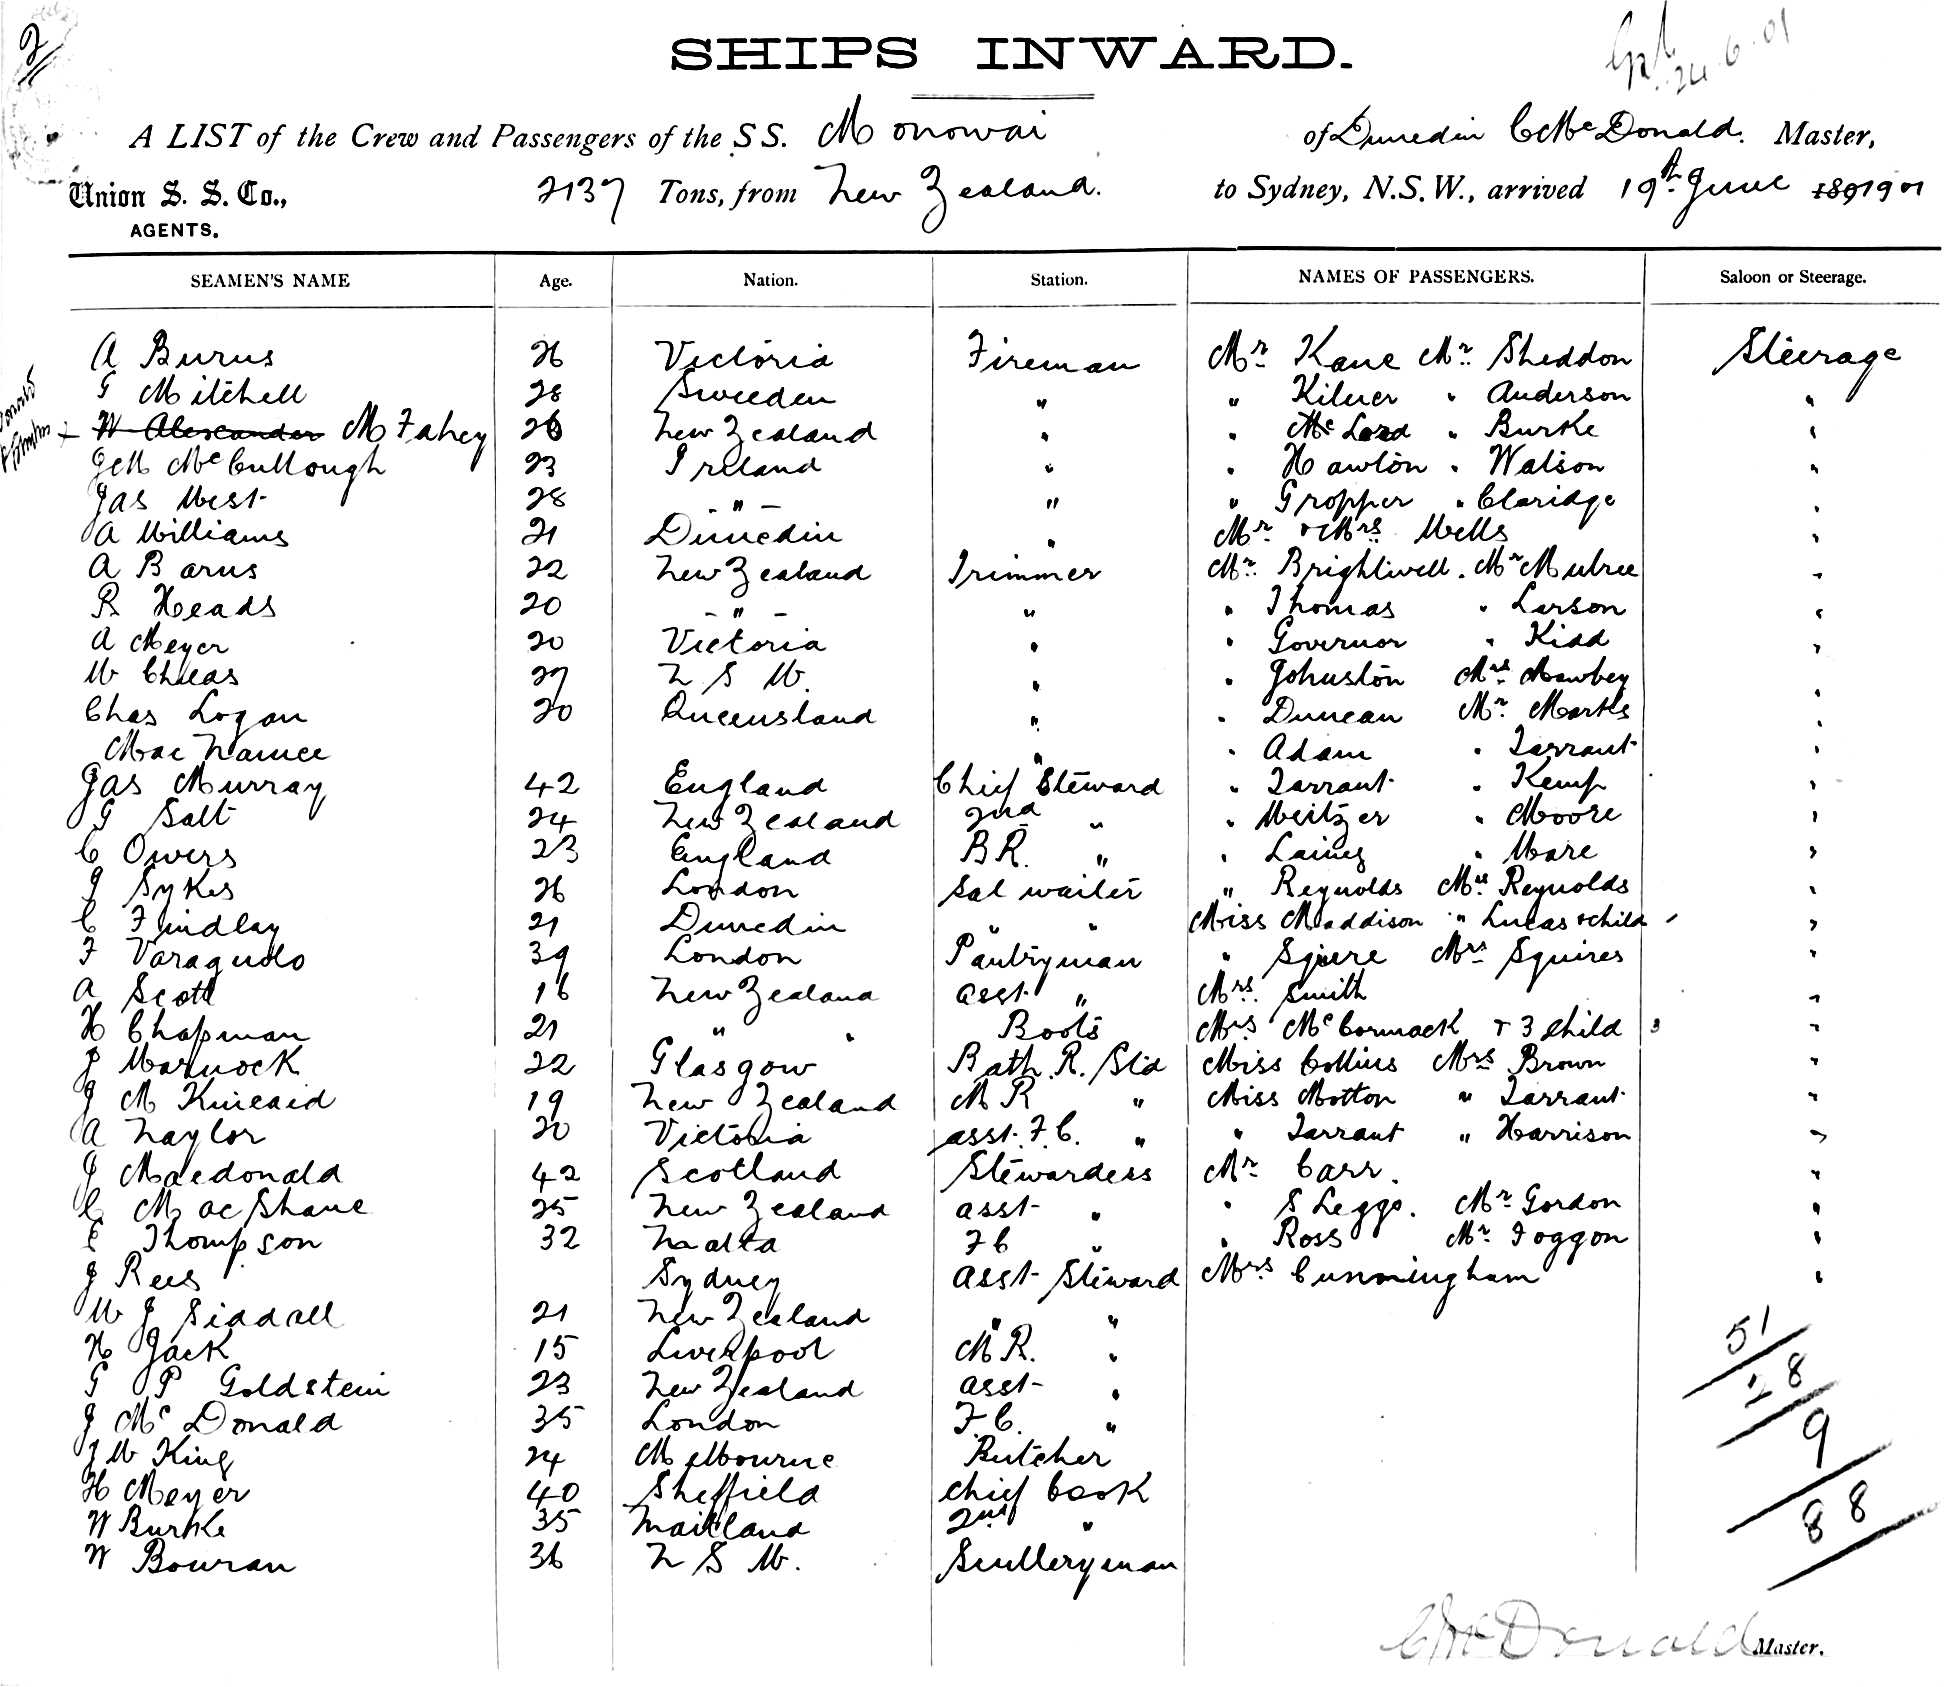 2
24.6.01
SHIPS INWARD.
A LIST of the Crew and Passengers of the S.S. Monowai of Dunedin C McDonald. Master,
Union S. S. Co., 2137 Tons, from New Zealand. to Sydney, N.S.W., arrived 19th June 1891901
AGENTS.
SEAMEN'S NAME Age. Nation. Station. NAMES OF PASSENGERS. Saloon or Steerage.
A Burns 26 Victoria Fireman Mr Kane Mr Sheddon Steerage
G Mitchell 28 Sweeden " " Kilner " Anderson "
W Alexander M Fahey 26 New Zealand " " McLord " Burke "
McCullough 23 Ireland " " Hawton " Watson "
Jas West 28 - " - " " Gropper " Claridge "
A Williams 21 Dunedin " Mr & Mrs Wells "
A Barns 22 New Zealand Trimmer Mr Brightwell. Mr Mulree "
R Heads 20 - " - " " Thomas " Larson "
A Meyer 20 Victoria " " Governor " Kidd "
W Cheas 27 N S W. " " Johnston Mrs Mawbey "
Chas Logan 20 Queensland " " Duncan Mr Marks "
Mac Namee " " Adam " Tarrant "
Jas Murray 42 England Chief Steward " Tarrant " Kemp "
G Salt 24 New Zealand 2nd " " Weitzer " Moore "
C Owers 23 England B.R. " " Laing " Ware "
J Sykes 26 London Sal waiter " Reynolds Mrs Reynolds "
C Findlay 21 Dunedin " " Miss Maddison " Lucas & child "
F Varagudo 39 London Pantryman " Squere Mrs Squires "
A Scott 16 New Zealand asst " Mrs Smith "
H Chapman 21 " " Boots Mrs McCormack + 3 child 3 "
J Warnock 22 Glasgow Bath. R. Std Miss Collins Mrs Brown "
J M Kincaid 19 New Zealand M R " Miss Motton " Tarrant "
A Naylor 20 Victoria asst. F.C. " " Tarrant " Harrison "
J Macdonald 42 Scotland Stewardess Mr Carr. "
C MacShane 25 New Zealand asst " " S Leggo. Mr Gordon "
E Thompson 32 Malta F C " " Ross Mr Foggon "
J Rees Sydney asst Steward Mrs Cunningham "
W J Siddall 21 New Zealand " "
H Jack 15 Liverpool M R. " 51
G P Goldstein 23 New Zealand asst " 28
J McDonald 35 London F.C. " 9
J W King 24 Melbourne Butcher
H Meyer 40 Sheffield chief Cook 88
W Burke 35 Maitland 2nd "
W Bowran 36 N S W. Scullery man
C McDonald Master.